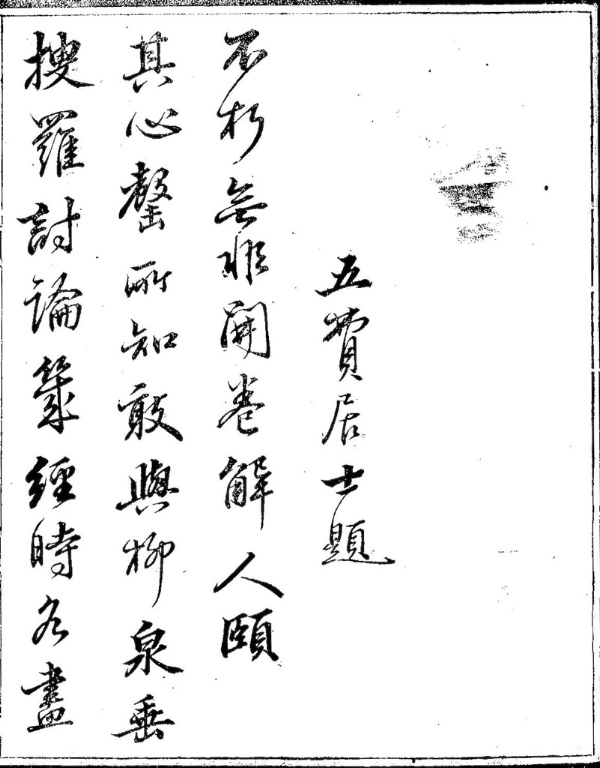 搜羅討論幾經時各盡
其心罄所知敢與柳泉垂
不朽無非開卷解人頤
五費居士題